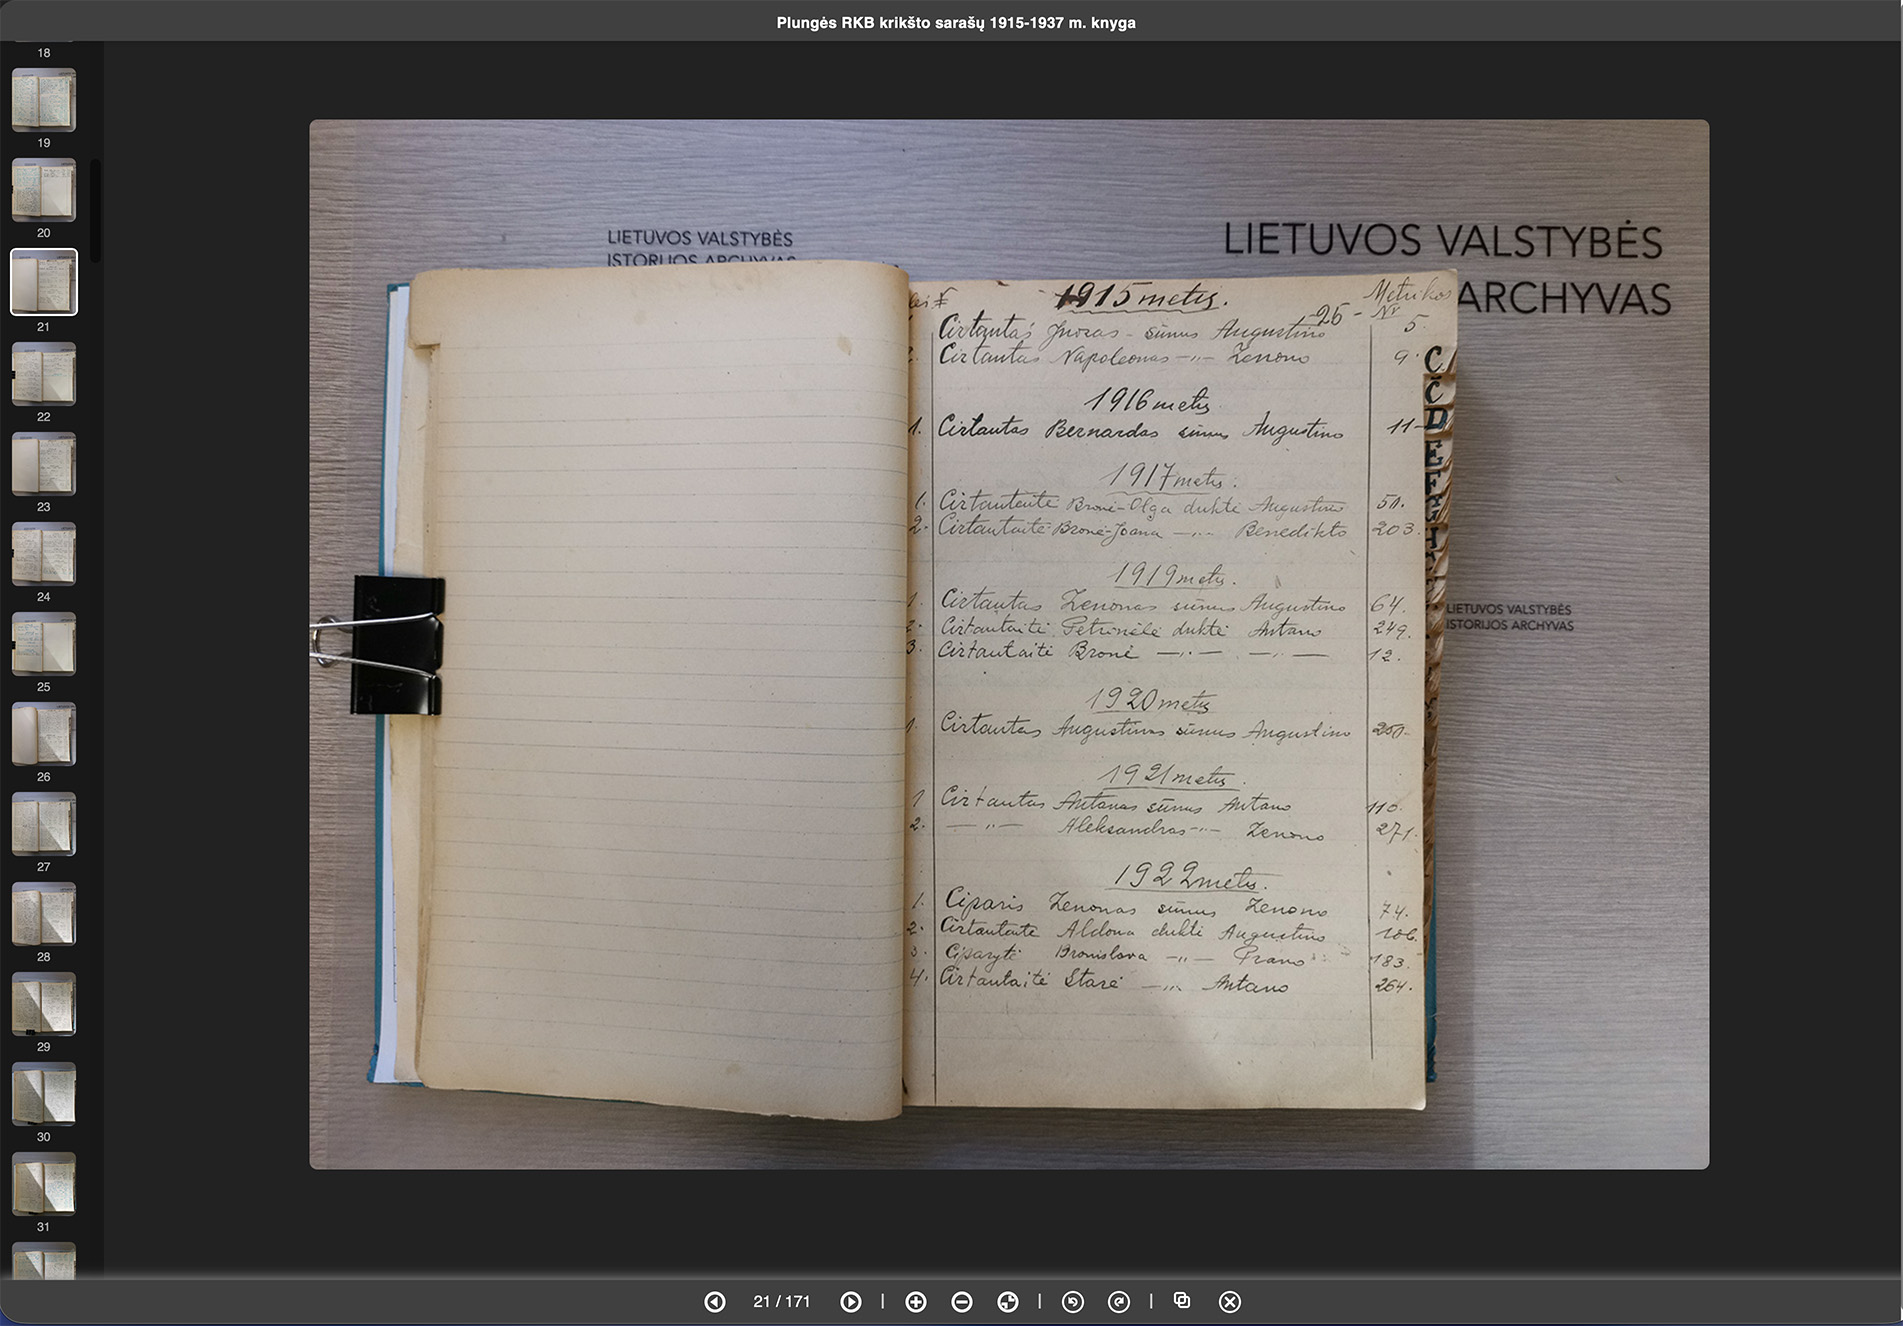 Plungės RKB krikšto sarašų 1915-1937 m. knyga
18
19
20
21
22
23
24
25
26
27
28
29
30
31
LIETUVOS VALSTYBĖS
ISTORIJOS ARCHYVAS
LIETUVOS VALSTYBĖS
ARCHYVAS
LIETUVOS VALSTYBĖS
ISTORIJOS ARCHYVAS
1915 metis.
-26-
Metrikos
Nr
Cirtautas Juozas - sūnus Augustino 5.
Cirtautas Napoleonas —„— Zenono 9.
1916 metis
1. Cirtautas Bernardas sūnus Augustino 11-
1917 metis.
1. Cirtautaitė Bronė-Olga duktė Augustino 51.
2. Cirtautaitė Bronė-Joana —„— Benedikto 203.
1919 metis.
1. Cirtautas Zenonas sūnus Augustino 64.
2. Cirtautaitė Petrinėlė duktė Antano 249.
3. Cirtautaitė Bronė —„— —„— 12.
1920 metis
1. Cirtautas Augustinas sūnus Augustino 250-
1921 metis.
1 Cirtautas Antanas sūnus Antano 110.
2. —„— Aleksandras —„— Zenono 271.
1922 metis.
1. Ciparis Zenonas sūnus Zenono 74.
2. Cirtautaitė Aldona duktė Augustino 106.
3. Ciparytė Bronislava —„— Prano 183.
4. Cirtautaitė Stasė —„— Antano 264.
C
Č
D
E
F
H
21 / 171